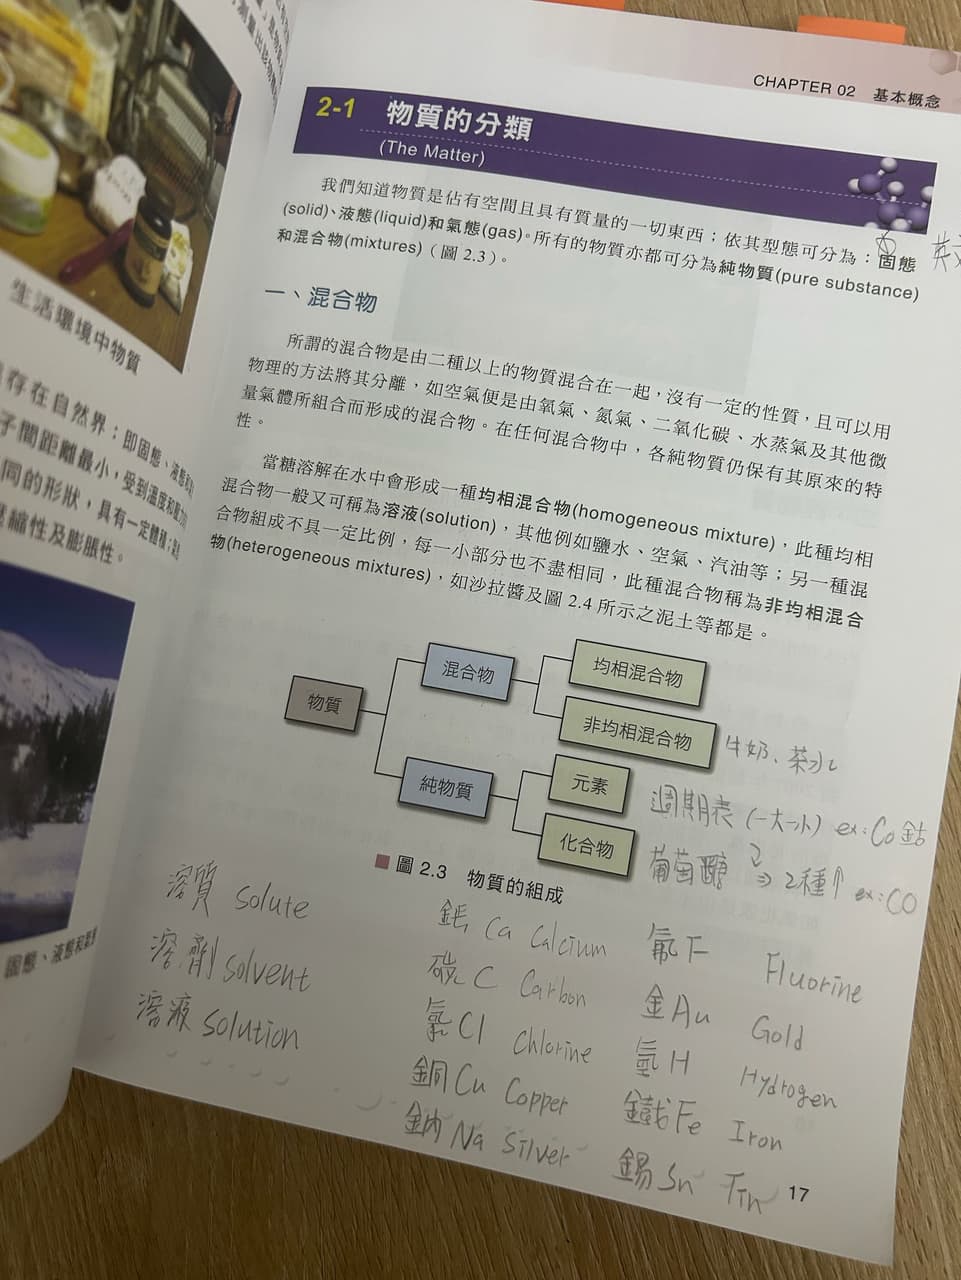 CHAPTER 02 基本概念
2-1 物質的分類
(The Matter)
我們知道物質是佔有空間且具有質量的一切東西；依其型態可分為：固態
(solid)、液態(liquid)和氣態(gas)。所有的物質亦都可分為純物質(pure substance)
和混合物(mixtures)（圖 2.3）。
一、混合物
所謂的混合物是由二種以上的物質混合在一起，沒有一定的性質，且可以用
物理的方法將其分離，如空氣便是由氧氣、氮氣、二氧化碳、水蒸氣及其他微
量氣體所組合而形成的混合物。在任何混合物中，各純物質仍保有其原來的特
性。
當糖溶解在水中會形成一種均相混合物(homogeneous mixture)，此種均相
混合物一般又可稱為溶液(solution)，其他例如鹽水、空氣、汽油等；另一種混
合物組成不具一定比例，每一小部分也不盡相同，此種混合物稱為非均相混合
物(heterogeneous mixtures)，如沙拉醬及圖 2.4 所示之泥土等都是。
物質
混合物
純物質
均相混合物
非均相混合物
牛奶、茶水
元素
週期表 (一大一小) ex:Co 鈷
化合物
葡萄糖 ⇒ 2種↑ ex:CO
圖 2.3 物質的組成
溶質 solute
溶劑 solvent
溶液 solution
鈣 Ca Calcium
碳 C Carbon
氯 Cl Chlorine
銅 Cu Copper
鈉 Na Silver
氟 F Fluorine
金 Au Gold
氫 H Hydrogen
鐵 Fe Iron
錫 Sn Tin
17
生活環境中物質
存在自然界：即固態、液態
子間距離最小，受到溫度和壓力
同的形狀，具有一定體積；
壓縮性及膨脹性。
固態、液態和氣態